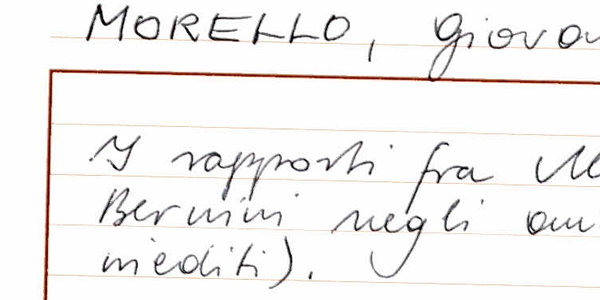 MORELLO, Giovan
I rapporti fra Me
Bernini negli ann
inediti).